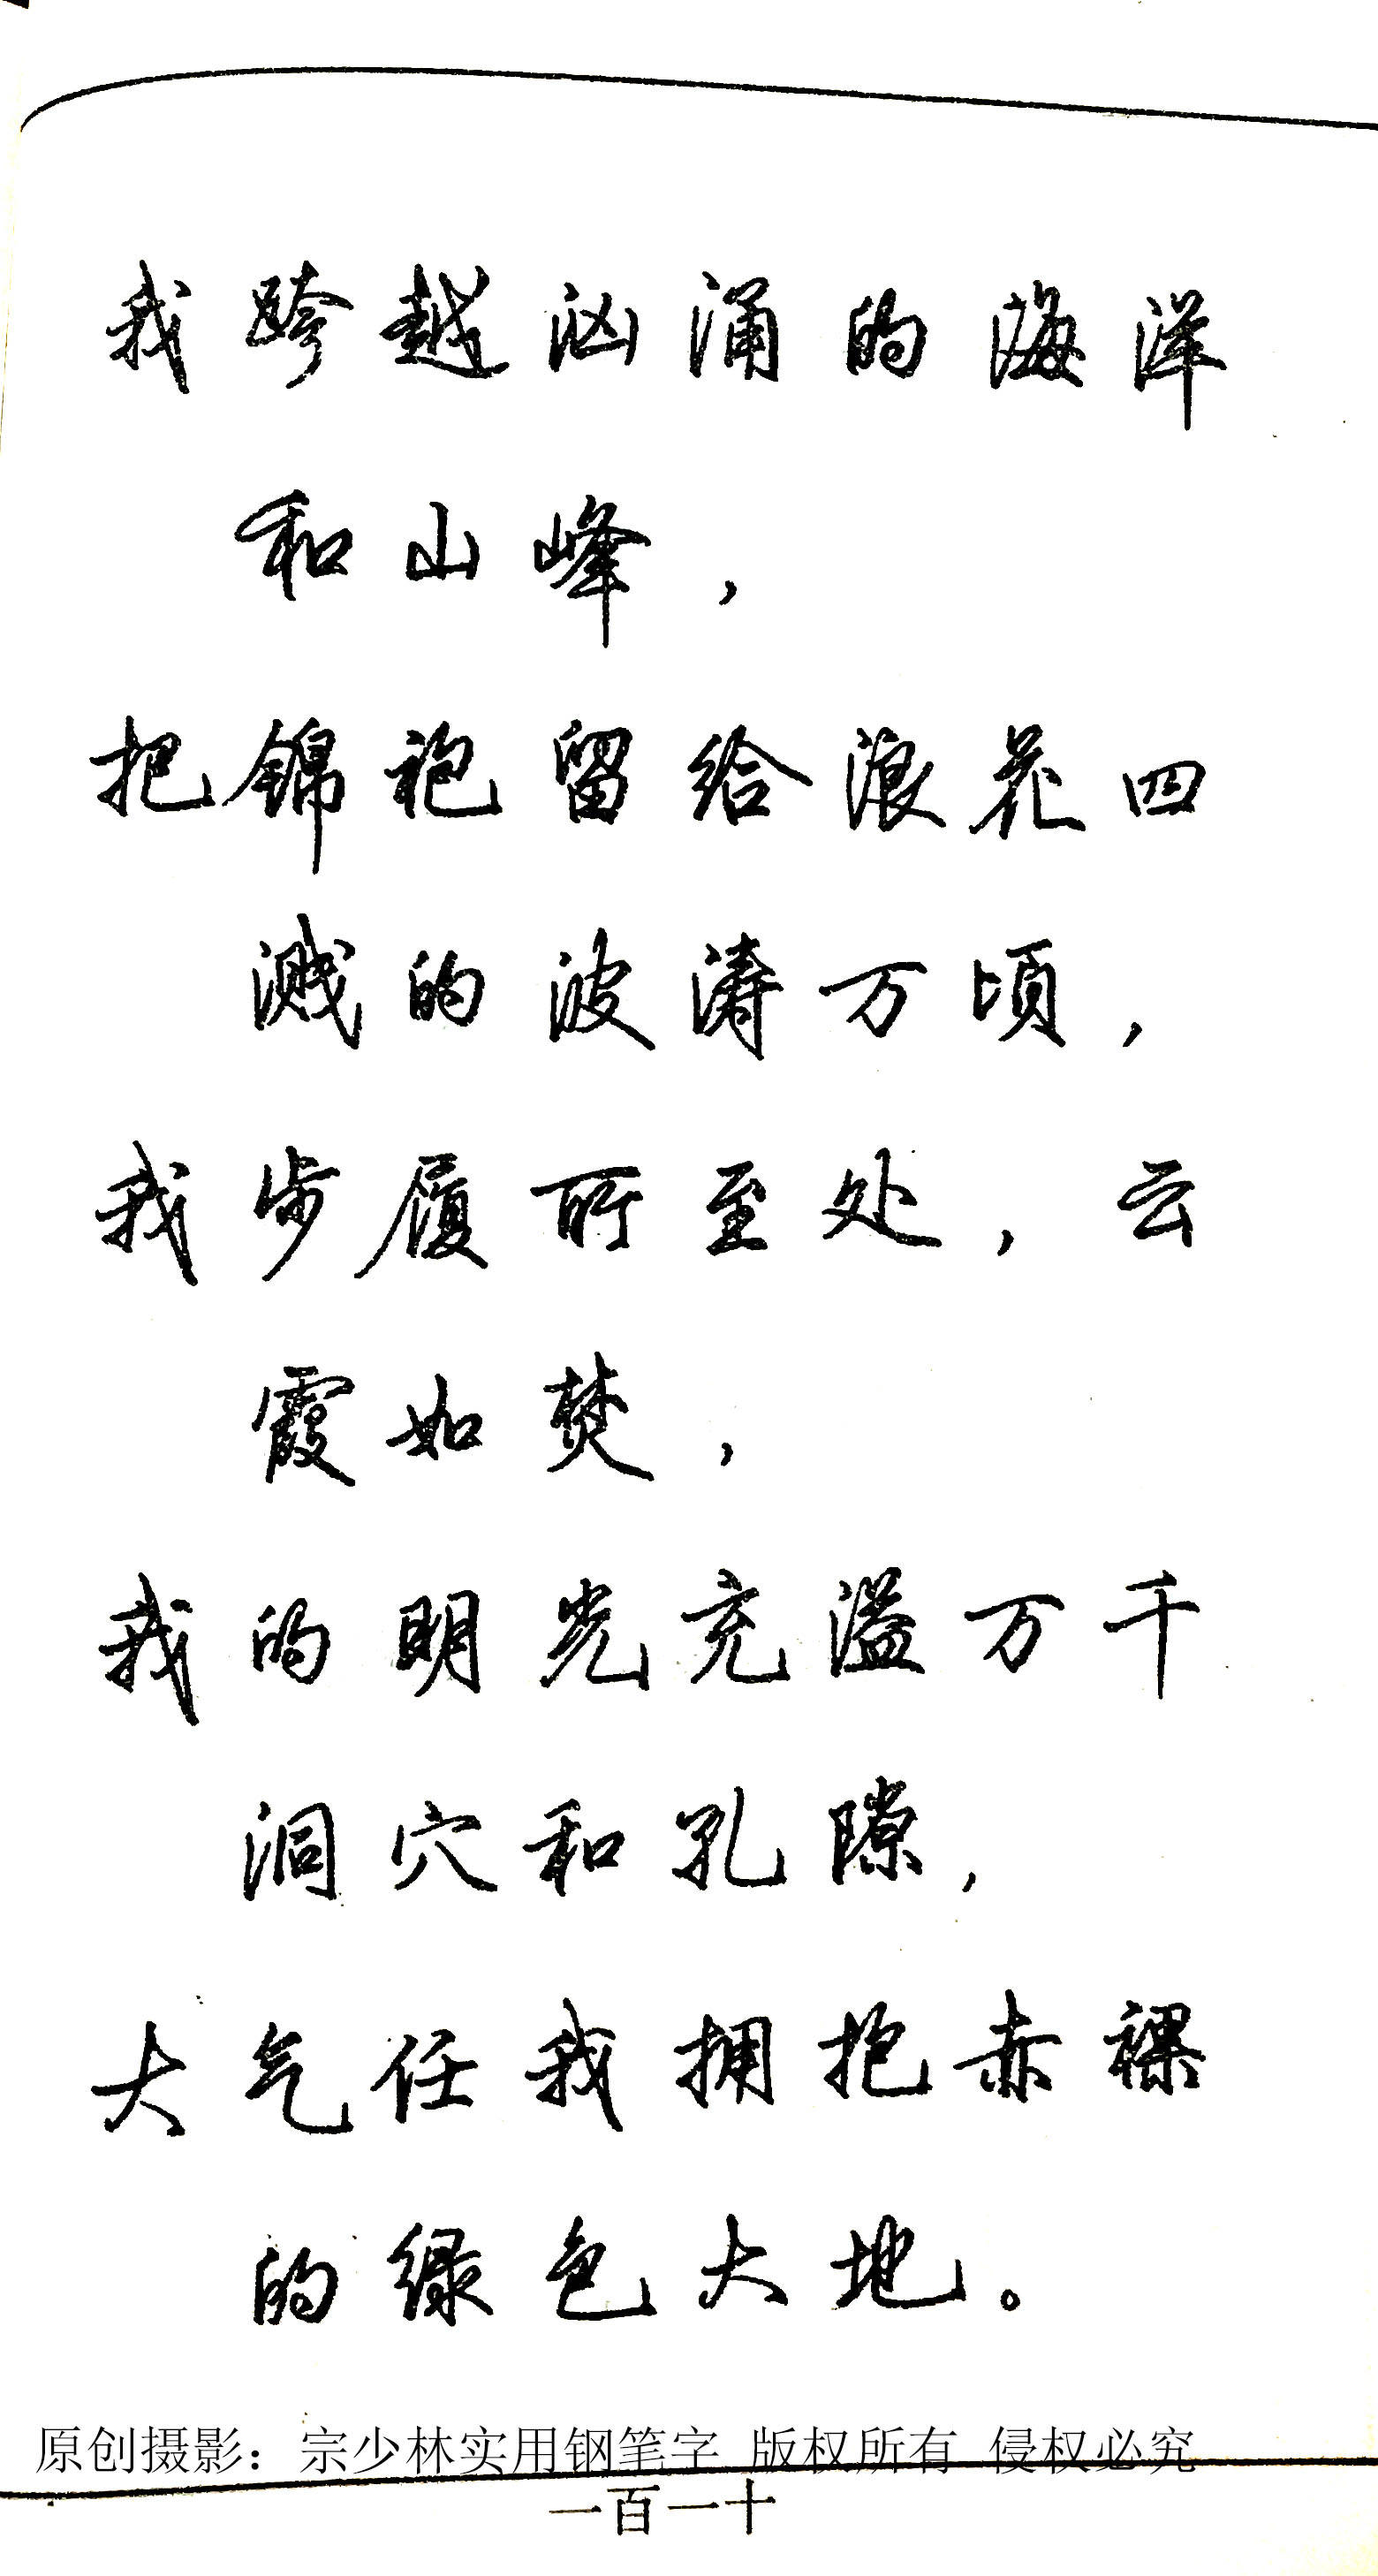 我跨越汹涌的海洋
和山峰，
把锦袍留给浪花四
溅的波涛万顷，
我步履所至处，云
霞如焚，
我的明光充溢万千
洞穴和孔隙，
大气任我拥抱赤裸
的绿色大地。
原创摄影：宗少林实用钢笔字 版权所有 侵权必究
一百一十